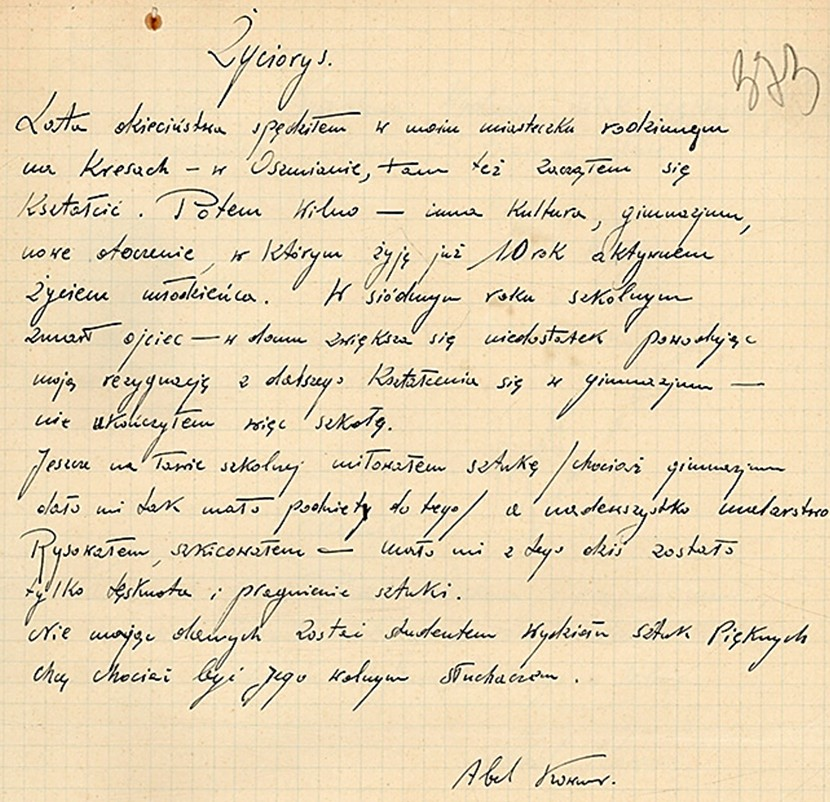 Życiorys.
373
Lata dzieciństwa spędziłem w moim miasteczku rodzinnym
na Kresach – w Oszmianie, tam też zacząłem się
kształcić. Potem Wilno — inna kultura, gimnazjum,
nowe otoczenie, w którym żyję już 10 rok aktywnem
życiem młodzieńca. W siódmym roku szkolnym
zmarł ojciec — w domu zwiększa się niedostatek powodując
moją rezygnację z dalszego kształcenia się w gimnazjum —
nie ukończyłem więc szkołę.
Jeszcze na ławie szkolnej miłowałem sztukę /chociaż gimnazjum
dało mi tak mało podniety do tego/ a nadewszystko malarstwo
Rysowałem, szkicowałem — mało mi z tego dziś zostało
tylko tęsknota i pragnienie sztuki.
Nie mając danych zostać studentem Wydziału Sztuk Pięknych
chcę chociaż być jego wolnym słuchaczem.
Abel